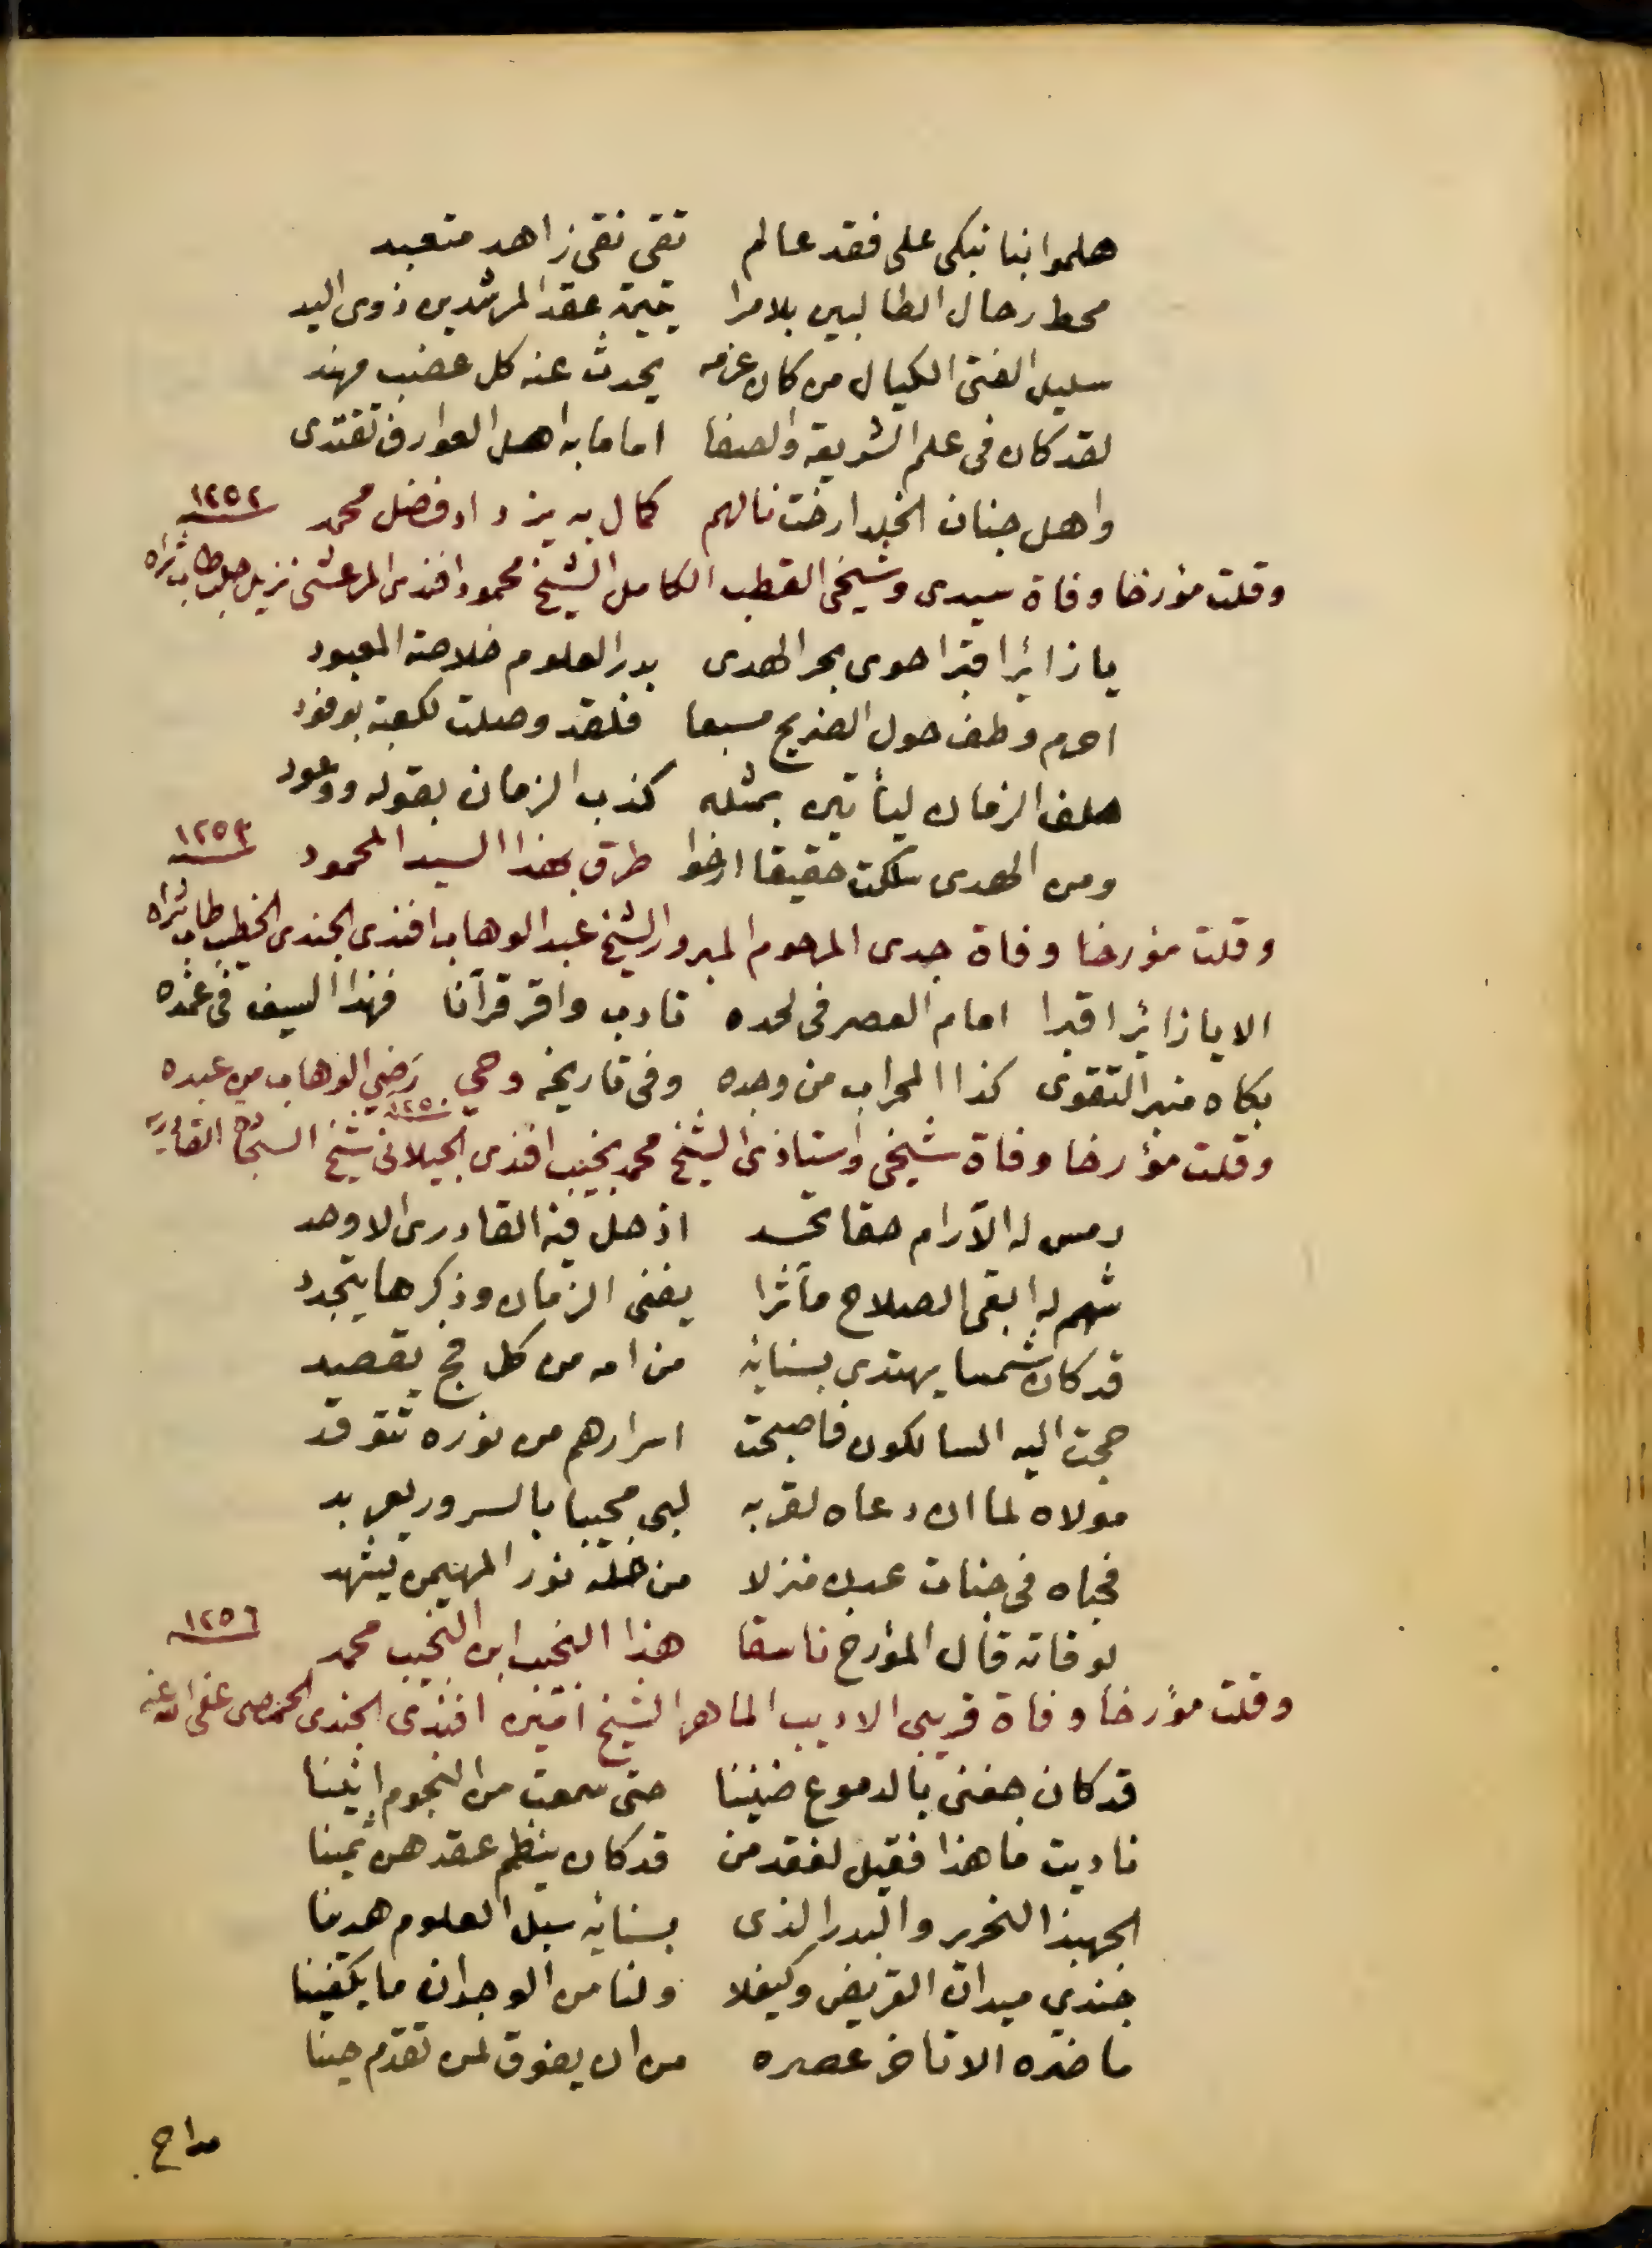 هلموا بنا نبكى على فقد عالم تقى نقى زاهد متعبد
محط رحال الطالبين بلا مرا يتيمة عقد المرشدين ذوى اليد
سليل الفتى الكيال من كان عزمه يحدث عنه كل عضب مهند
لقد كان فى علم الشريعة والصفا اماما به اهل العوارف تقتدى
واهل جنان الخلد ارخت نالهم كمال به يزداد فضل محمد ١٢٥٢
وقلت مؤرخا وفاة سيدى وشيخى القطب الكامل الشيخ محمود افندى المرعشى نزيل حلب طاب ثراه
يا زائرا قبرا حوى بحر الهدى بدر العلوم خلاصة المعبود
احرم وطف حول الضريح مسبعا فلقد وصلت لكعبة بوفود
حلف الزمان ليأتين بمثله كذب الزمان بقوله ووعود
ومن الهدى سلكت حقيقا ارخوا طرق بهذا السيد المحمود ١٢٥٣
وقلت مؤرخا وفاة جدى المرحوم المبرور الشيخ عبد الوهاب افندى الجندى الخطيب طاب ثراه
الا يا زائرا قبرا امام العصر فى لحده تادب واقر قرآنا فهذا السيف فى غمده
بكاه منبر التقوى كذا المحراب من وجده وفى تاريخه وحي رضي الوهاب من عبده
١٢٥٠
وقلت مؤرخا وفاة شيخى واستاذى الشيخ محمد نجيب افندى الجيلانى شيخ السجادة القادرية
رمس له الآرام حقا تحسد اذ حل فيه القادرى الاوحد
شهم له ابقى الصلاح مآثرا يفنى الزمان وذكرها يتجدد
قد كان شمسا يهتدى بسنائه من امه من كل فج يقصد
حجت اليه السالكون فاصبحت اسرارهم من نوره تتوقد
مولاه لما ان دعاه لقربه لبى مجيبا بالسرور يعربد
فحباه فى جنات عدن منزلا من حله نور المهيمن يشهد
لوفاته قال المؤرخ ناسقا هذا النجيب ابن النجيب محمد ١٢٥٦
وقلت مؤرخا وفاة قريبى الاديب الماهر الشيخ امين افندى الجندى الحمصى عفى الله عنه
قد كان جفنى بالدموع ضنينا حتى سمعت من النجوم انينا
ناديت ما هذا فقيل لفقد من قد كان ينظم عقدهن ثمينا
الجهبذ النحرير والبدر الذى بسنائه سبل العلوم هدينا
جندي ميدان القريض وكيف لا ولنا من الوجدان ما يكفينا
ما ضره الا تاخر عصره من ان يفوق لمن تقدم حينا
مداح